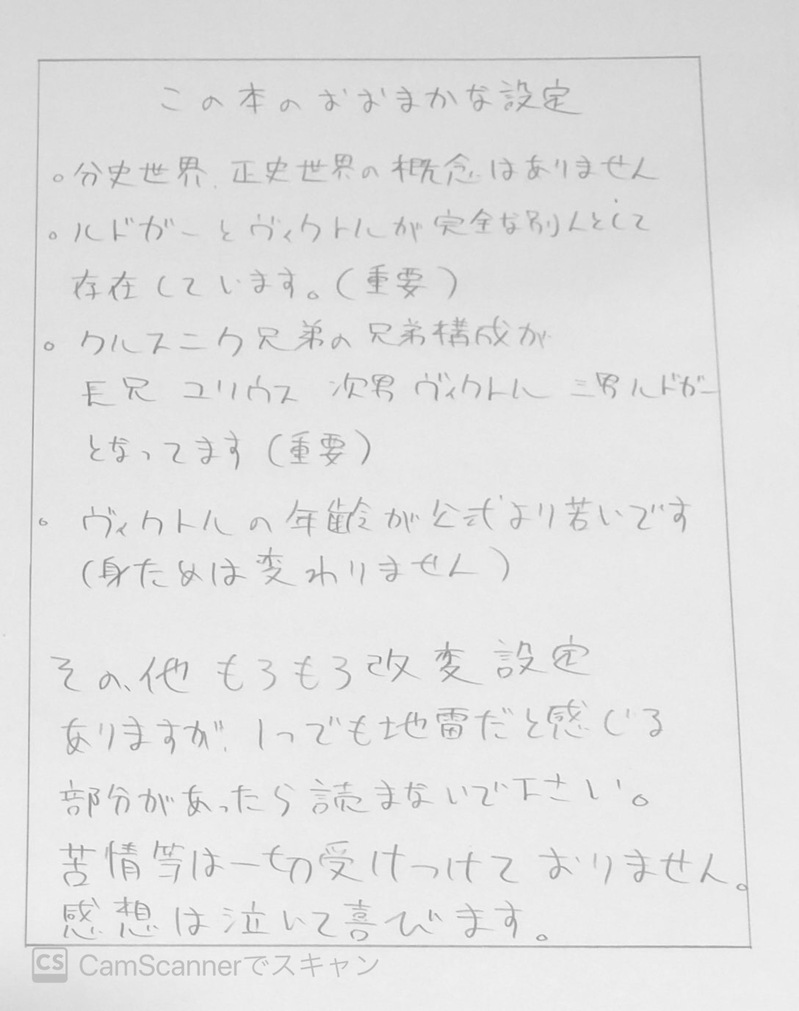 この本のおおまかな設定
。分史世界、正史世界の概念はありません
。ルドガーとヴィクトルが完全な別人として
存在しています。(重要)
。クルスニク兄弟の兄弟構成が
長兄 ユリウス 次男 ヴィクトル 三男ルドガー
となってます(重要)
。ヴィクトルの年齢が公式より若いです
(身ためは変わりません)
その、他 もろもろ改変設定
ありますが、1つでも地雷だと感じる
部分があったら読まないで下さい。
苦情等は一切受けつけておりません。
感想は泣いて喜びます。
CS CamScannerでスキャン